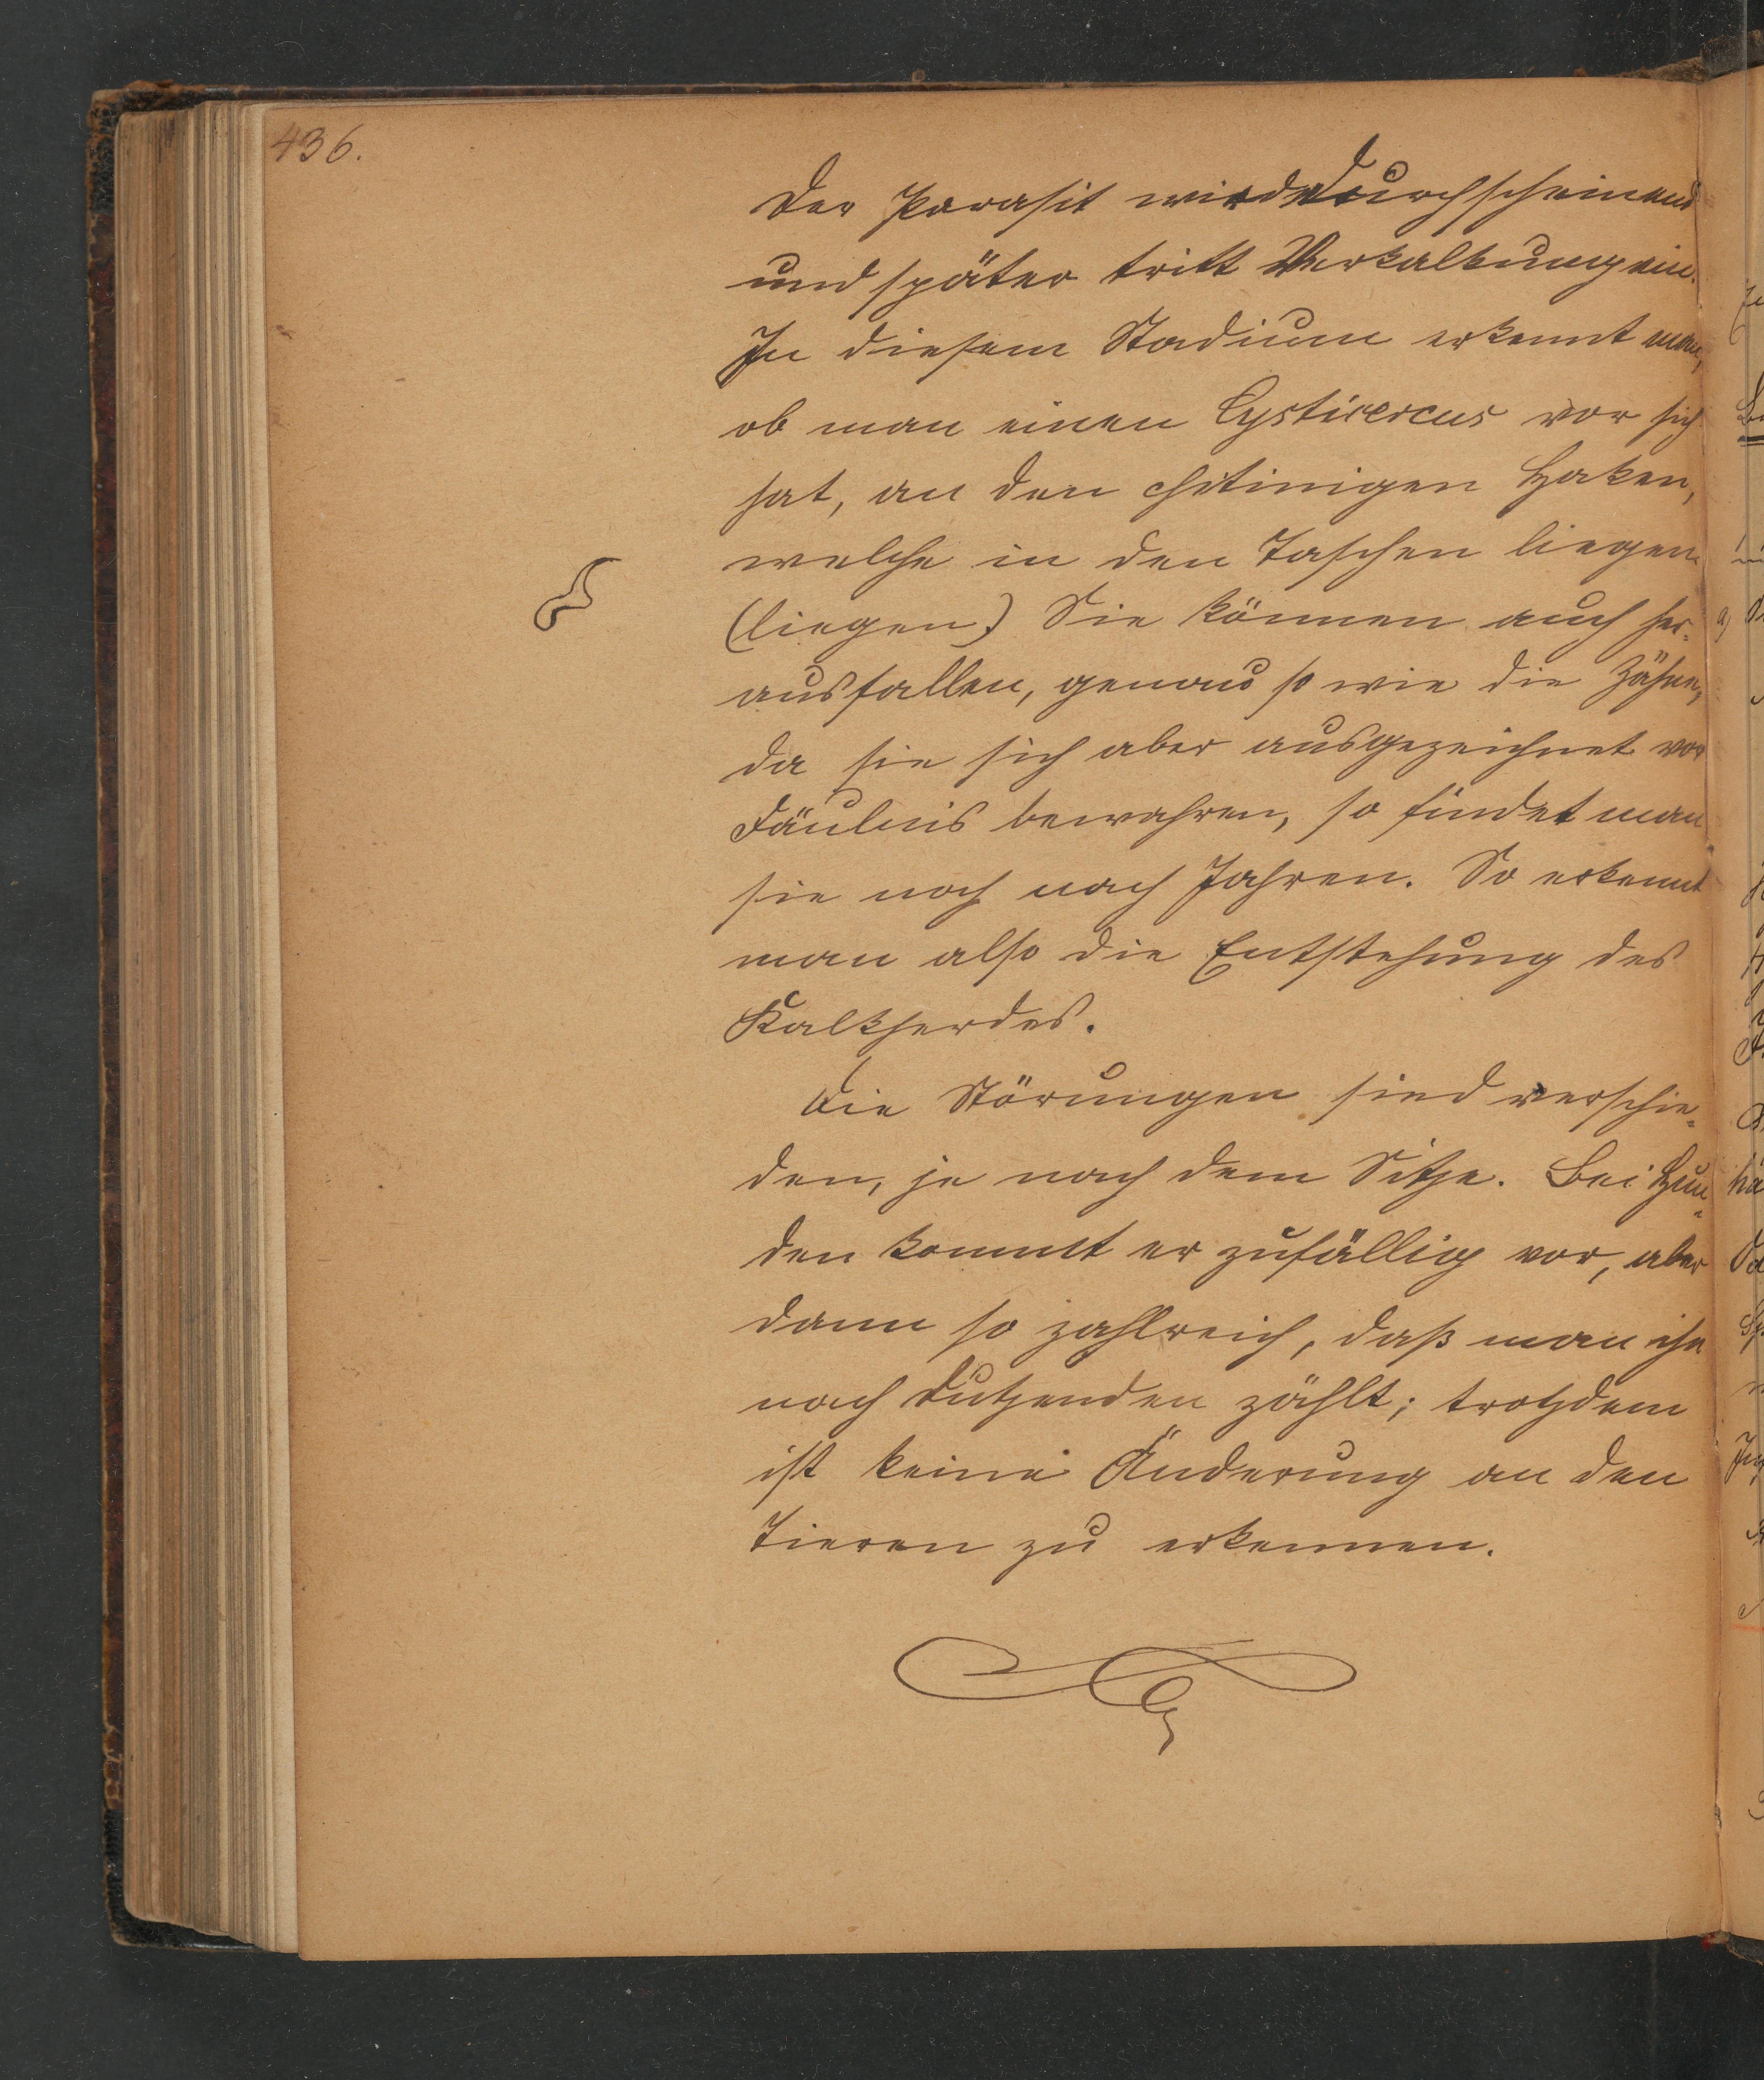 436.
Der Parasit wird durchscheinend
und später tritt Verkalkung ein.
In diesem Stadium erkennt man,
ob man einen Cysticercus vor sich
hat, an den chitinigen Haken,
welche in den Taschen liegen
(liegen.) Sie können auch her-
ausfallen, genau so wie die Zähne,
da sie sich aber ausgezeichnet vor
Fäulnis bewahren, so findet man
sie noch nach Jahren. So erkennt
man also die Entstehung des
Kalkherdes.
Die Störungen sind verschie-
den, je nach dem Sitze. Bei Hun-
den kommt er zufällig vor, aber
dann so zahlreich, daß man ihn
nach Dutzenden zählt; trotzdem
ist keine Änderung an den
Tieren zu erkennen.